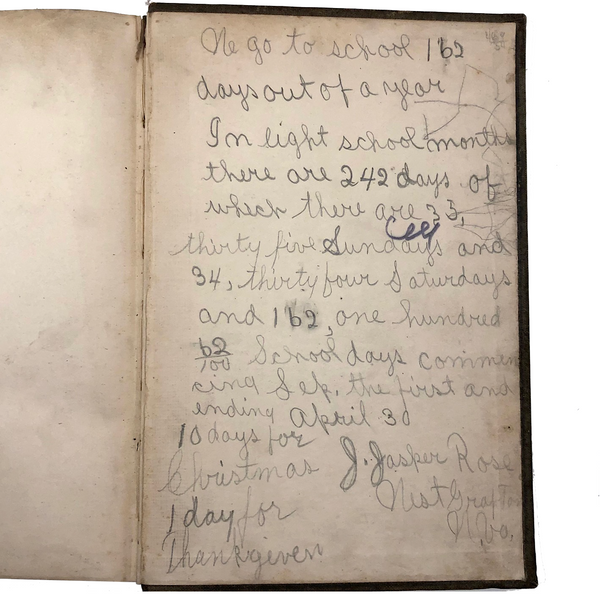 We go to school 162
days out of a year
In eight school months
there are 242 days of
which there are 35,
thirty five Sundays and
34, thirty four Saturdays
and 162, one hundred
62/100 School days commen
cing Sep. the first and
ending April 30
10 days for
Christmas J. Jasper Rose
1 day for West Grafton
Thanksgiven W.Va.